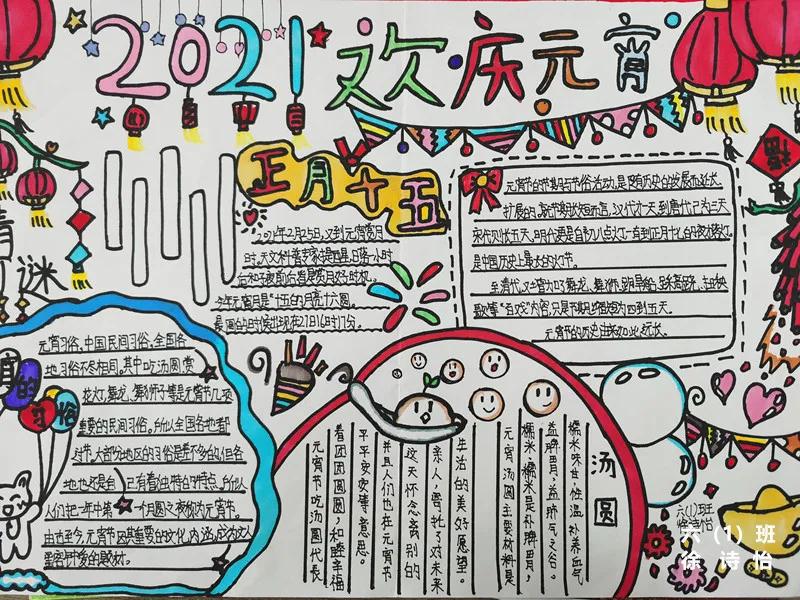 2021 欢庆元宵
猜
灯谜
正月十五
2021年2月25日,又到元宵赏月
时。天文科普专家
后和子夜前后是赏月的好时机。
今年元宵月是“十五的月亮十六圆”
最圆的时候出现在27日16时17分。
元宵节的节期与节俗活动,是随历史的发展而延长
扩展的。就节期长短而言,汉代才一天,到唐代已为三天
宋代则长五天,明代更是自初八点灯一直到正月十七的夜里落灯
是中国历史上最长的灯节。
至清代,又增加了舞龙、舞狮、跑旱船、踩高跷、扭秧
歌等“百戏”内容,只是节期缩短为四到五天。
元宵节的历史由来如此悠长。
宵的习俗
元宵习俗,中国民间习俗,全国各
地习俗不尽相同,其中吃汤圆赏
花灯、舞龙、舞狮子等是元宵节几项
重要的民间习俗。所以全国各地都
过节,大部分地区的习俗是差不多的,但各
地也还是有自己有着独特的特点。所以
人们把一年中第一个月圆之夜称为元宵节。
由古至今,元宵节因其重要的文化内涵,成为文人
墨客抒发的题材。
汤圆
糯米味甘,性温,补养血气
益脾胃,益肺气之谷。
糯米,糯米是补脾胃,
元宵汤圆主要材料是
生活的美好愿望。
亲人,寄托了对未来
这天怀念离别的
并且人们也在元宵节
平平安安等意思。
着团团圆圆,和睦幸福
元宵节吃汤圆代表
六(1)班
徐诗怡
六(1)班
徐诗怡